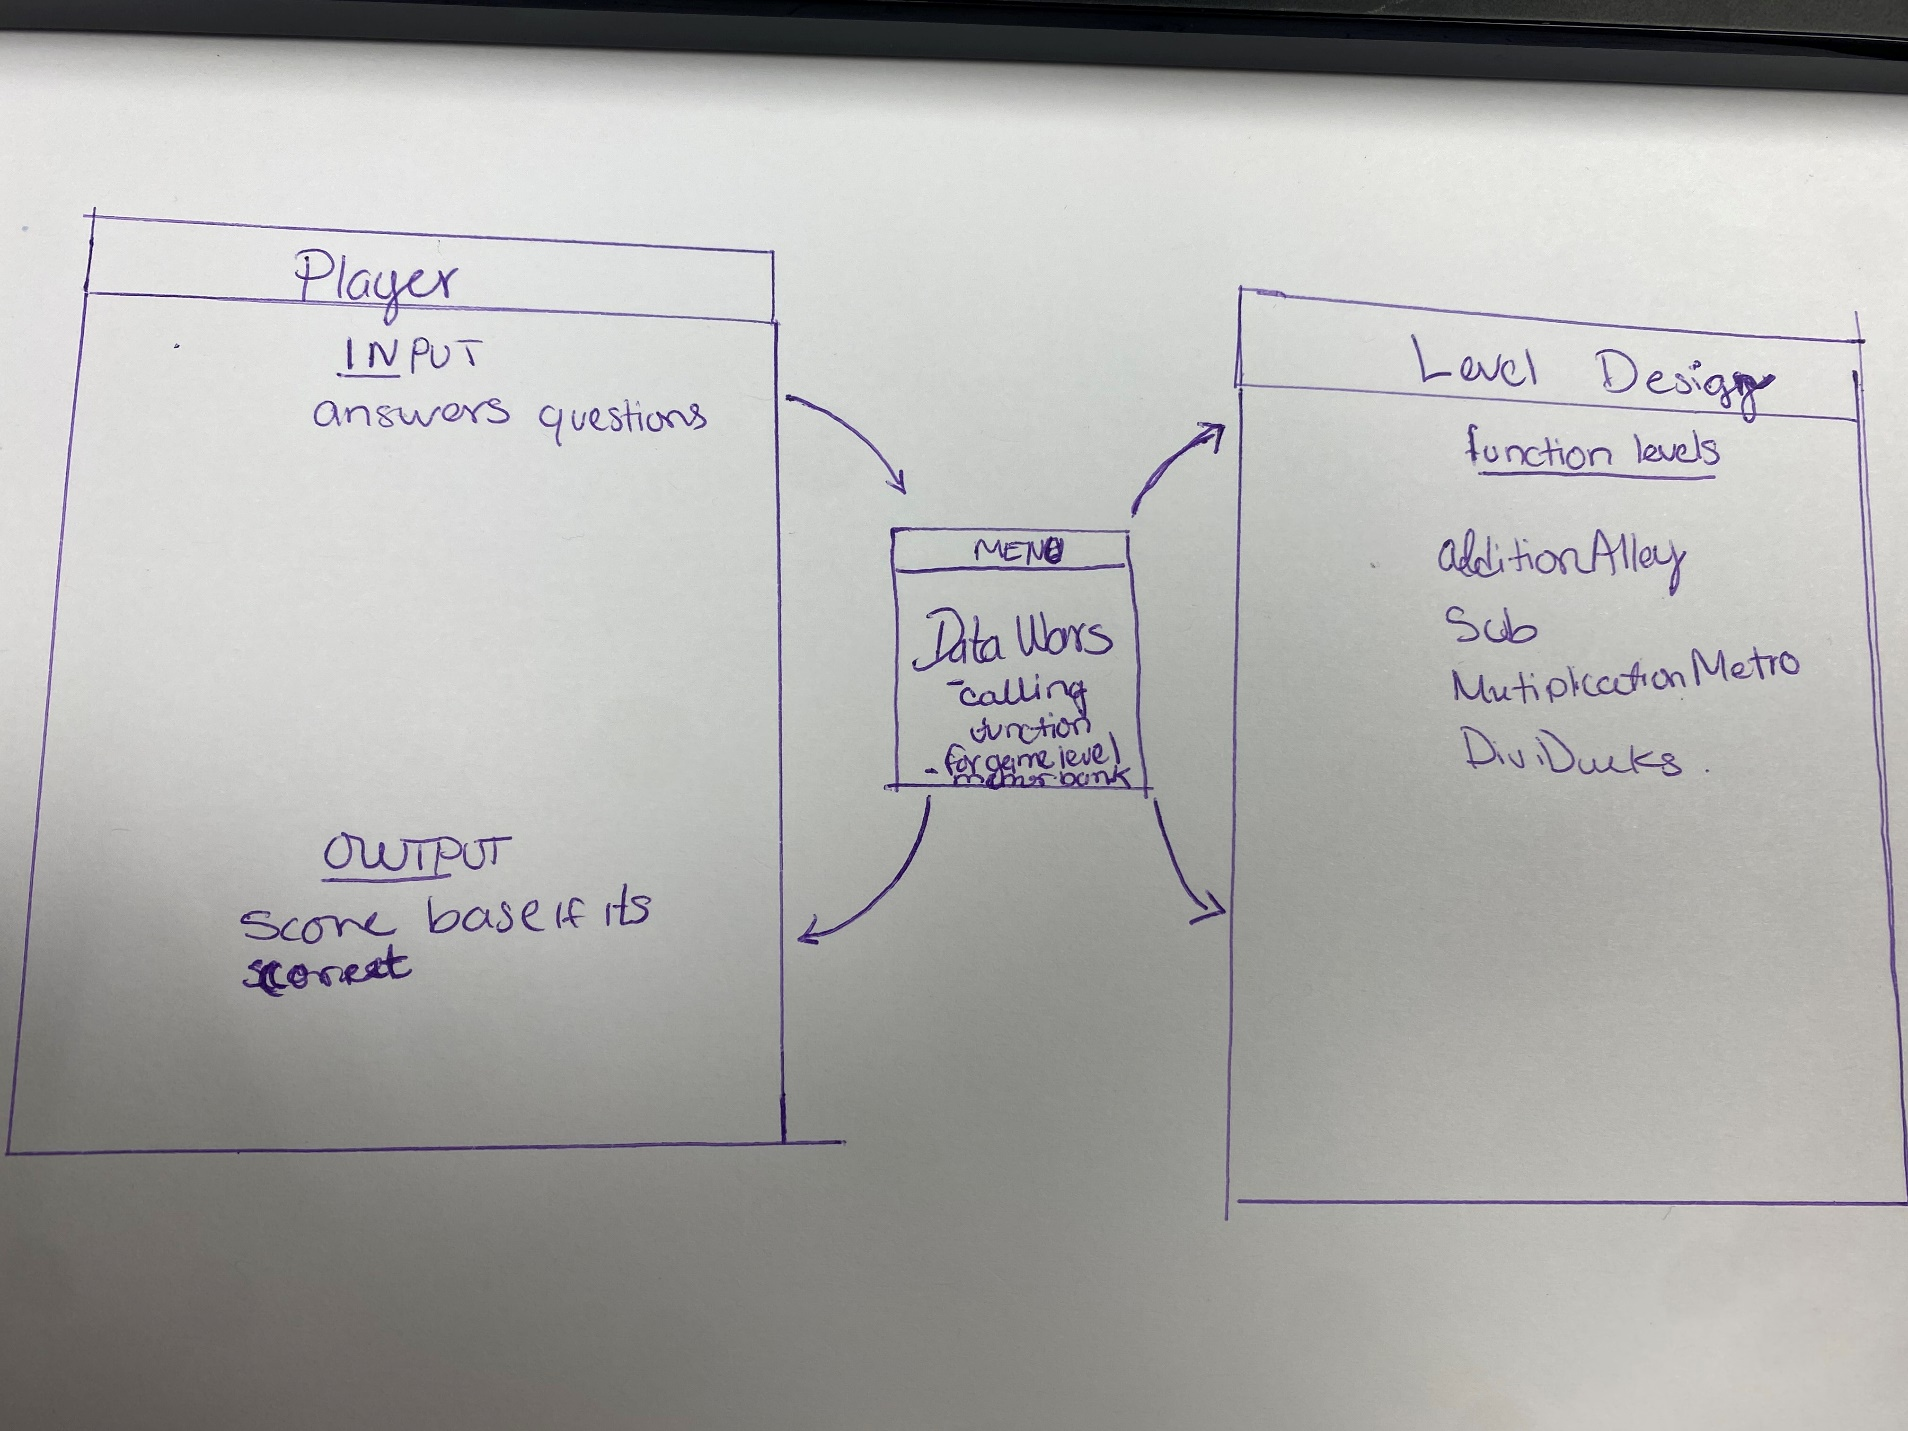 Player
INPUT
answers questions
OUTPUT
score base if its
correct
MENU
Data Wars
- calling
function
for game level
- bank
Level Design
function levels
additionAlley
Sub
MutiplicationMetro
DiviDucks.